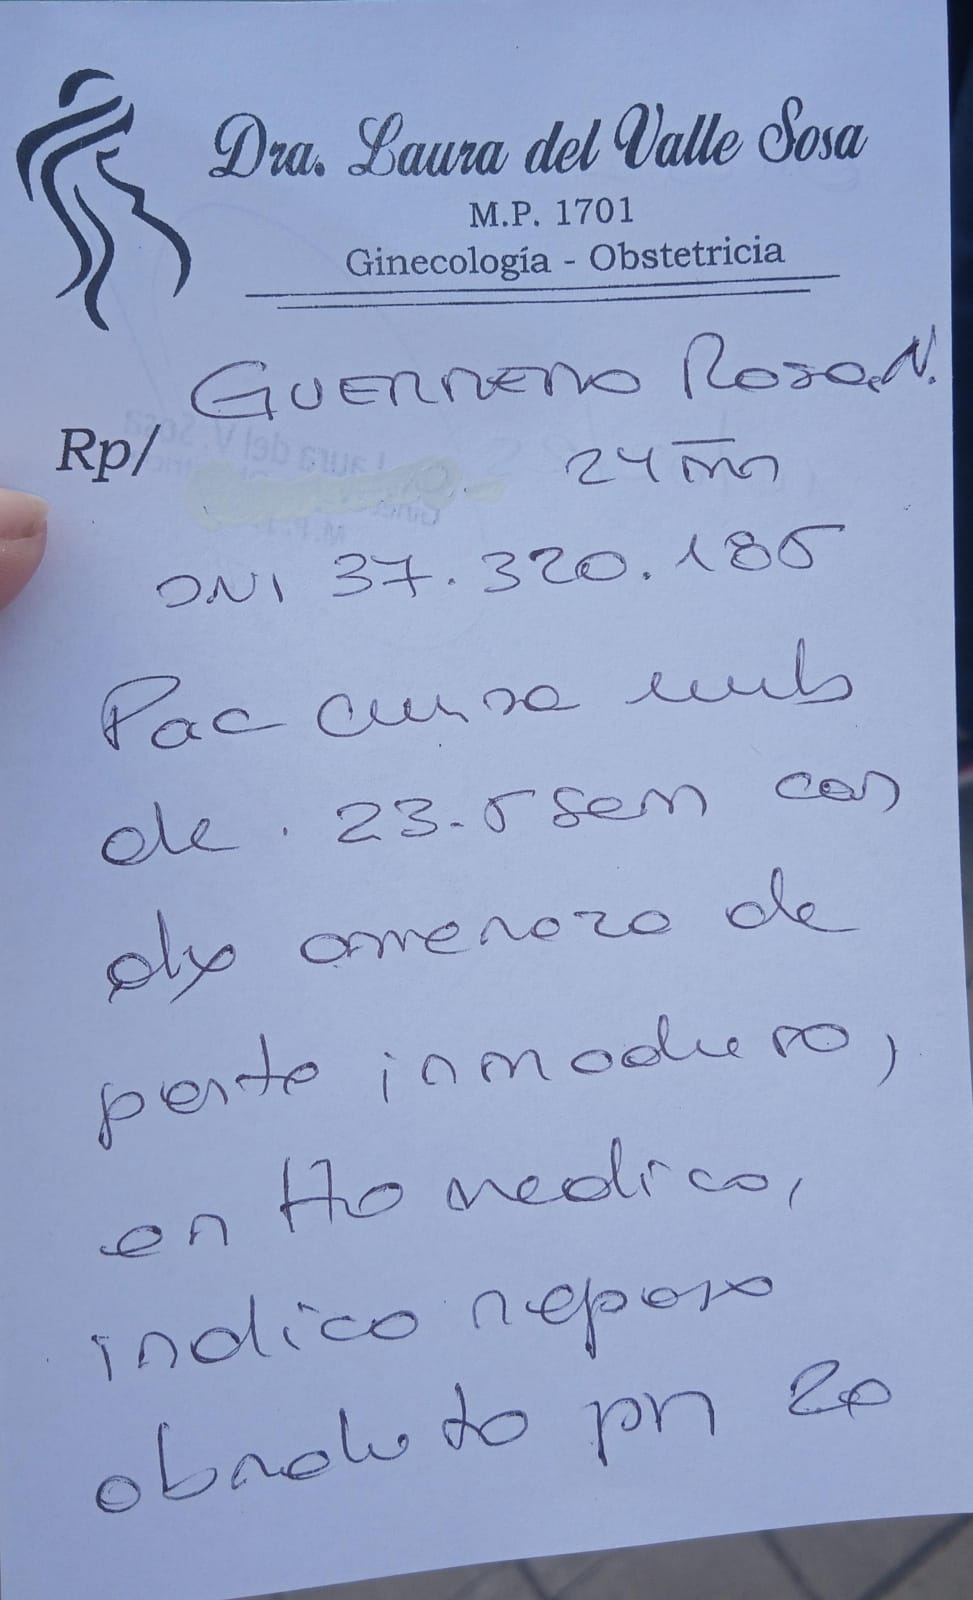 Dra. Laura del Valle Sosa
M.P. 1701
Ginecología - Obstetricia
GUERRERO Rosa N.
Rp/
DNI 37.320.185
Pac cursa emb
de 23.5 sem con
dx amenaza de
parto inmaduro,
en tto medico,
indico reposo
absoluto por 20